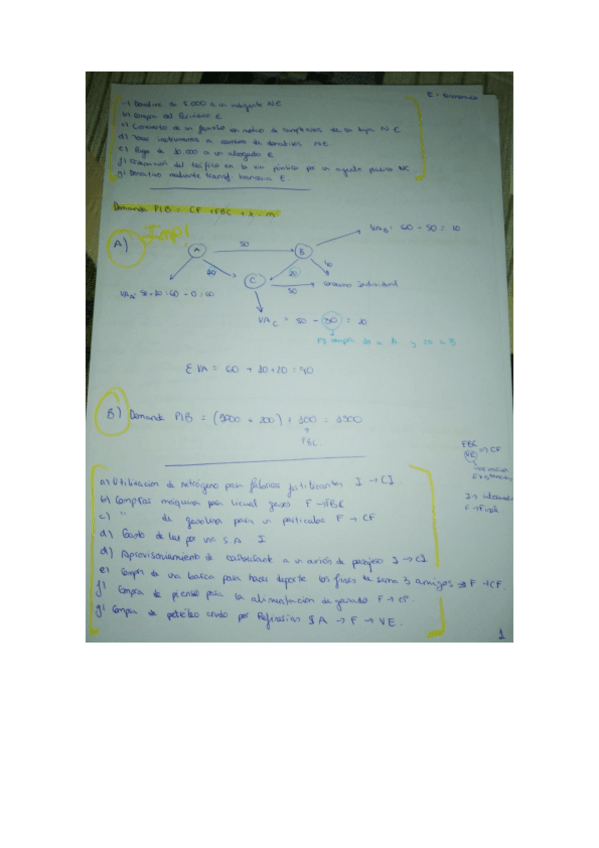 E - Economico
a) Donativo de 5.000 a un indigente NE
b) Compra del Periódico E
c) Concierto de un
d) Tocar instrumentos a cambio de donativos NE.
e) Pago de 30.000 a un abogado E
f) del tráfico en la vía pública por un
g) Donativo mediante transf bancaria E.
Demanda PIB = CF + FBC + X - M
A) ¡Imp!
A 50 B
VAB = 60 - 50 = 10
40 20 40
C 50 consumo individual
VAA = 50+10 = 60 - 0 = 60
VAC = 50 - 30 = 20
10 compra de a A y 20 a B
Σ VA = 60 + 10 + 20 = 90
B) Demanda PIB = + 200) + 100 = 1300
FBC
a) Utilización de nitrógeno para fabricar fertilizantes I → CI.
b) Compras máquina para licuar gases F → FBC
c) " de gasolina para un particular F → CF
d) Gasto de luz por una S.A I
d) Aprovisionamiento de carburante a un avión de pasajeros I → CI
e) Compra de una barca para hacer deporte los fines de semana 3 amigos F → CF.
f) Compra de pienso para la alimentación de ganado F → CF.
g) Compra de petróleo crudo por Refinerías SA → F → VE.
FBC
VE → CF
Existencias
I →
F → Final
1